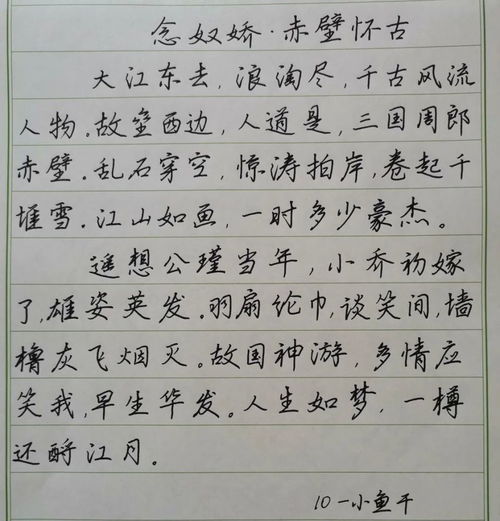 念奴娇·赤壁怀古
大江东去,浪淘尽,千古风流
人物.故垒西边,人道是,三国周郎
赤壁.乱石穿空,惊涛拍岸,卷起千
堆雪.江山如画,一时多少豪杰。
遥想公瑾当年,小乔初嫁
了,雄姿英发.羽扇纶巾,谈笑间,墙
橹灰飞烟灭。故国神游,多情应
笑我,早生华发。人生如梦,一樽
还酹江月。
10一小鱼干